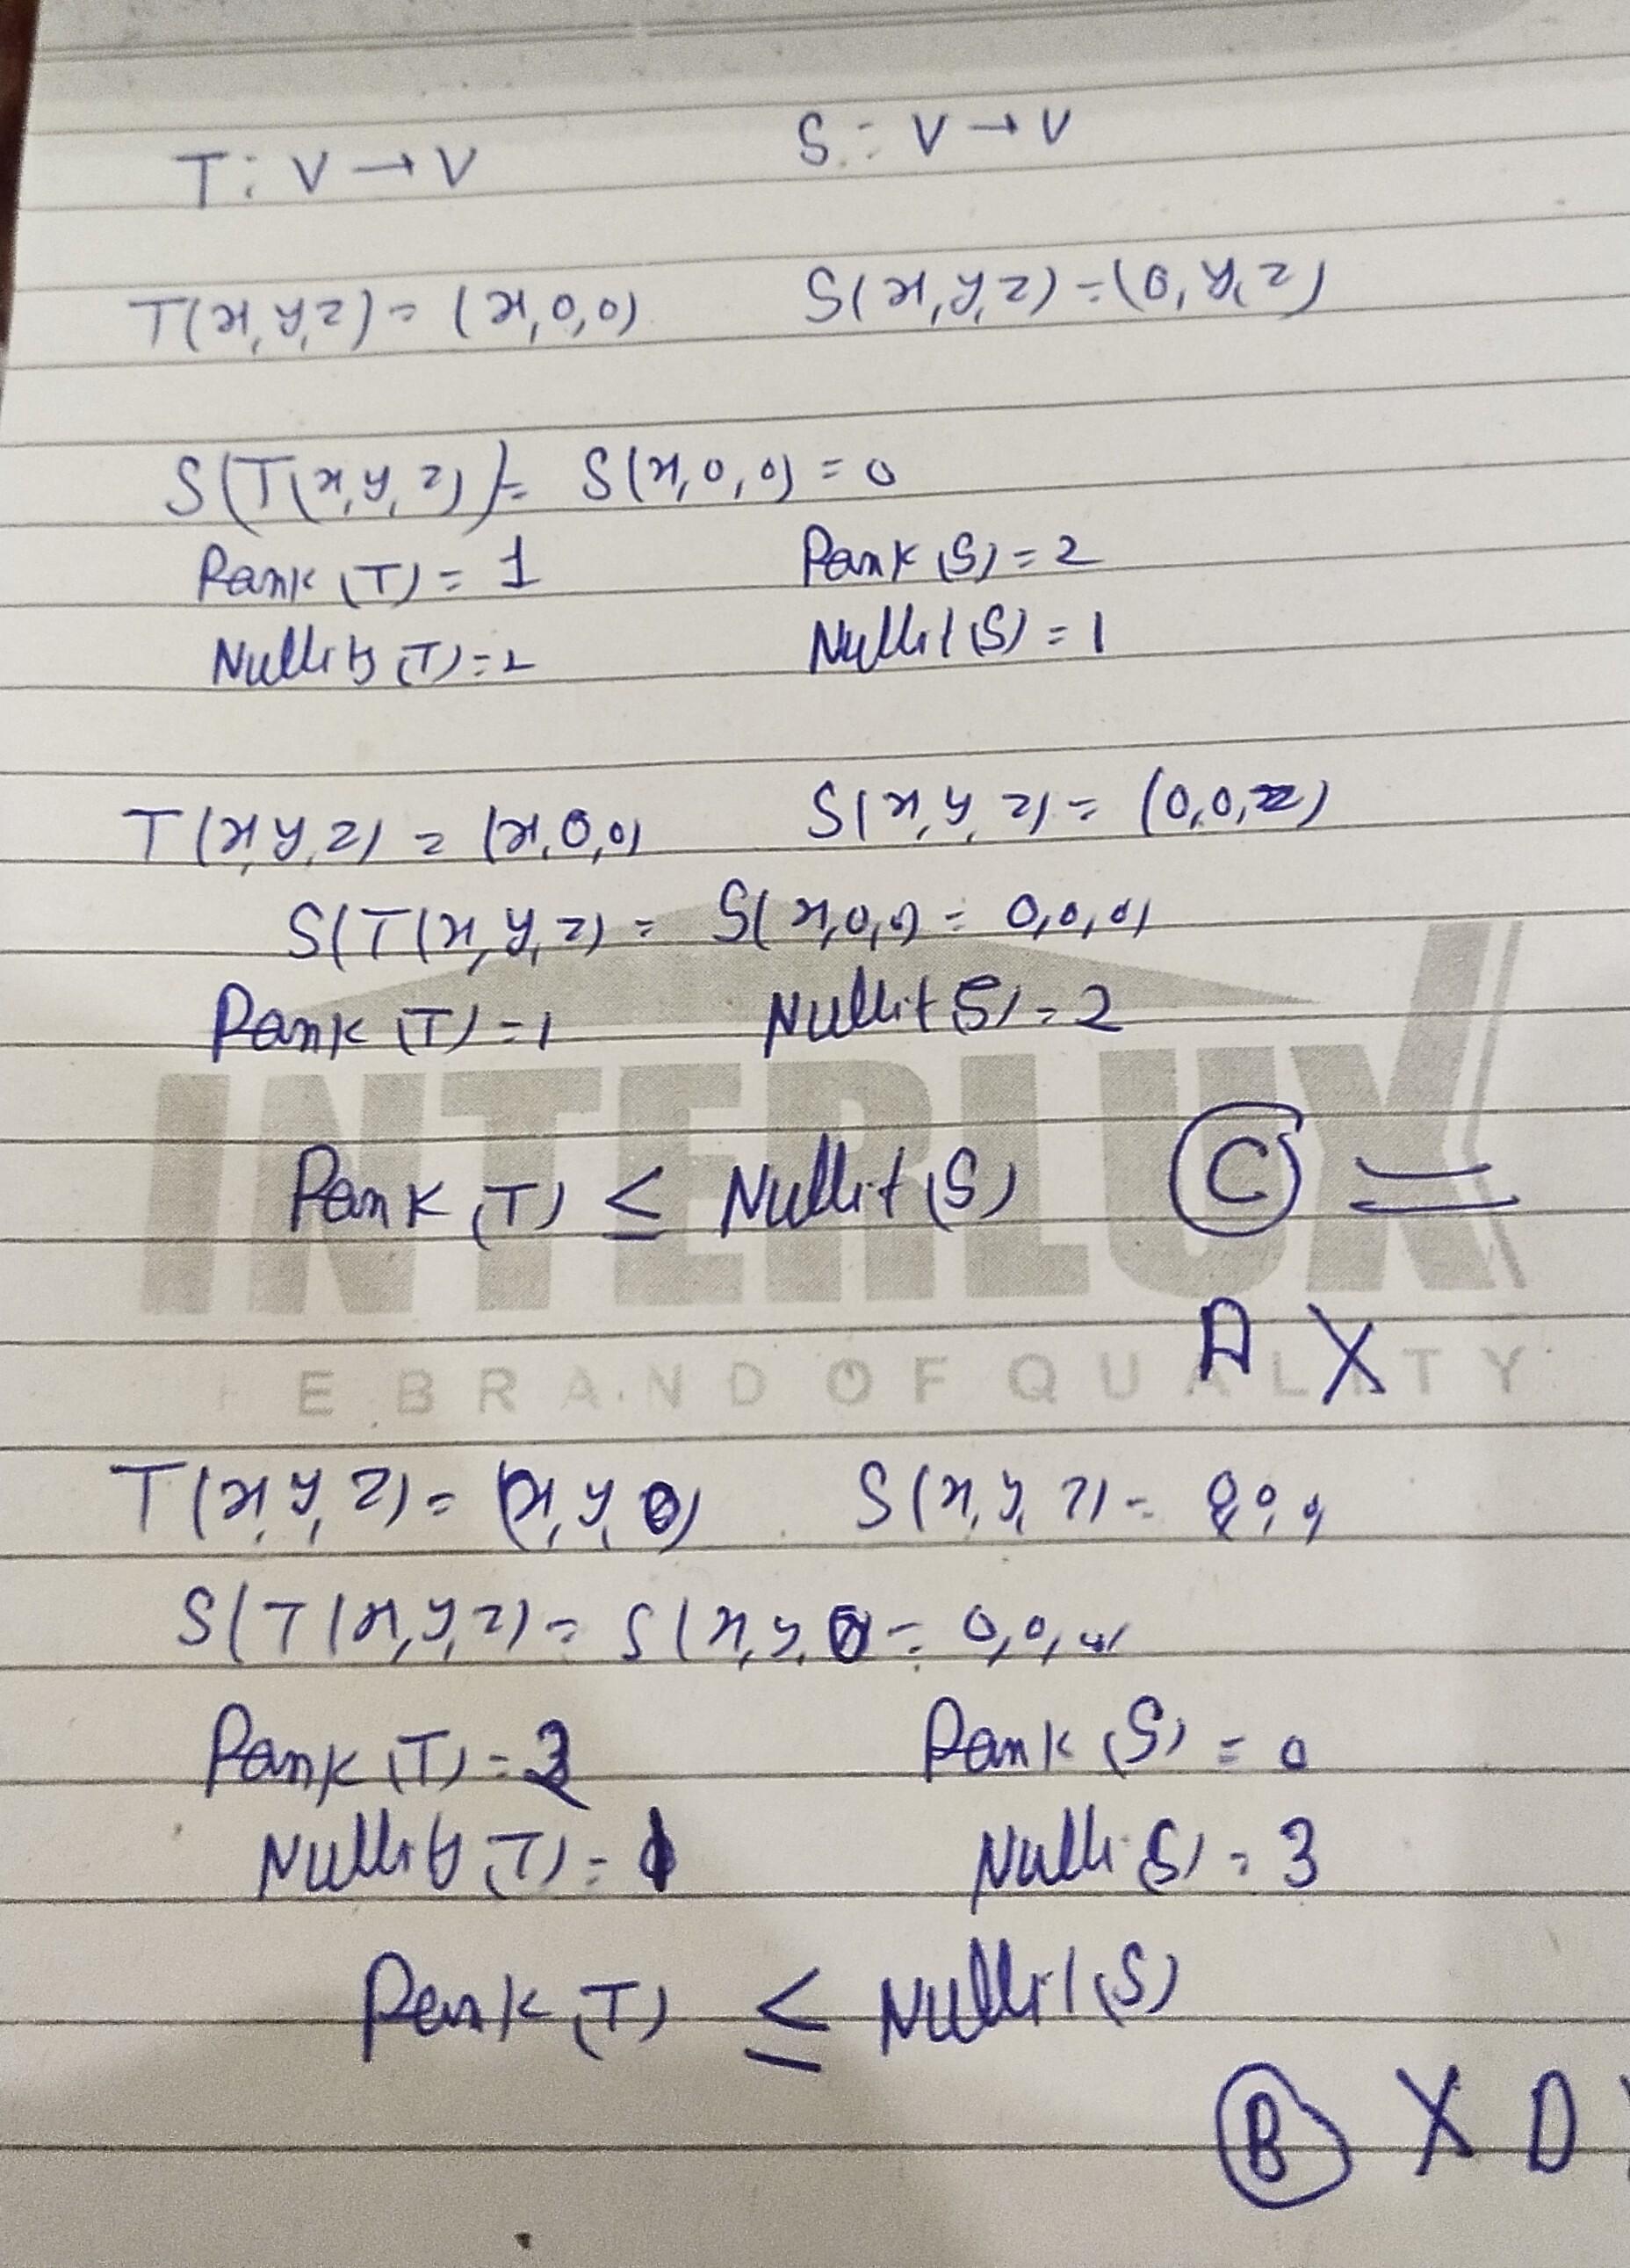 T: V → V S: V → V
T(x,y,z) = (x,0,0) S(x,y,z) = (0,y,z)
S(T(x,y,z)) = S(x,0,0) = 0
Rank(T) = 1 Rank(S) = 2
Nullity(T) = 2 Nullit(S) = 1
T(x,y,z) = (x,0,0) S(x,y,z) = (0,0,z)
S(T(x,y,z) = S(x,0,0) = 0,0,0)
Rank(T) = 1 Nullit(S) = 2
Rank(T) ≤ Nullit(S) C
INTERLUX
A X
E BRAND OF QUALITY
T(x,y,z) = (x,y,0) S(x,y,z) = 0,0,0
S(T(x,y,z) = S(x,y,0 = 0,0,0)
Rank(T) = 2 Rank(S) = 0
Nullity(T) = 1 Nulli(S) = 3
Rank(T) ≤ Nullit(S)
B X D